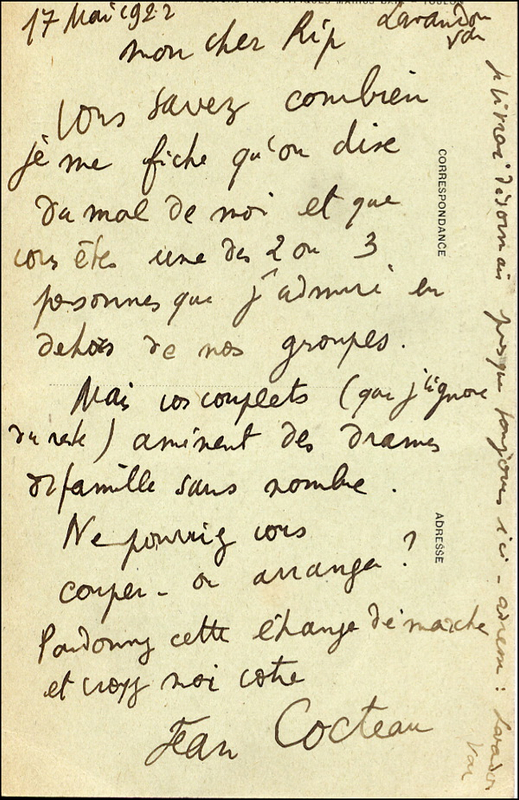 17 Mai 1922
Lavandou
Var
mon cher Rip
Vous savez combien
je me fiche qu'on dise
du mal de moi et que
vous êtes une des 2 ou 3
personnes que j'admire en
dehors de nos groupes.
Mais vos couplets (que j'ignore
du reste) amènent des drames
de famille sans nombre.
Ne pourriez vous
couper - ou arranger ?
Pardonnez cette étrange démarche
et croyez moi votre
Jean Cocteau
CORRESPONDANCE
ADRESSE
désormais presque toujours ici - adresse : Lavandou
Var